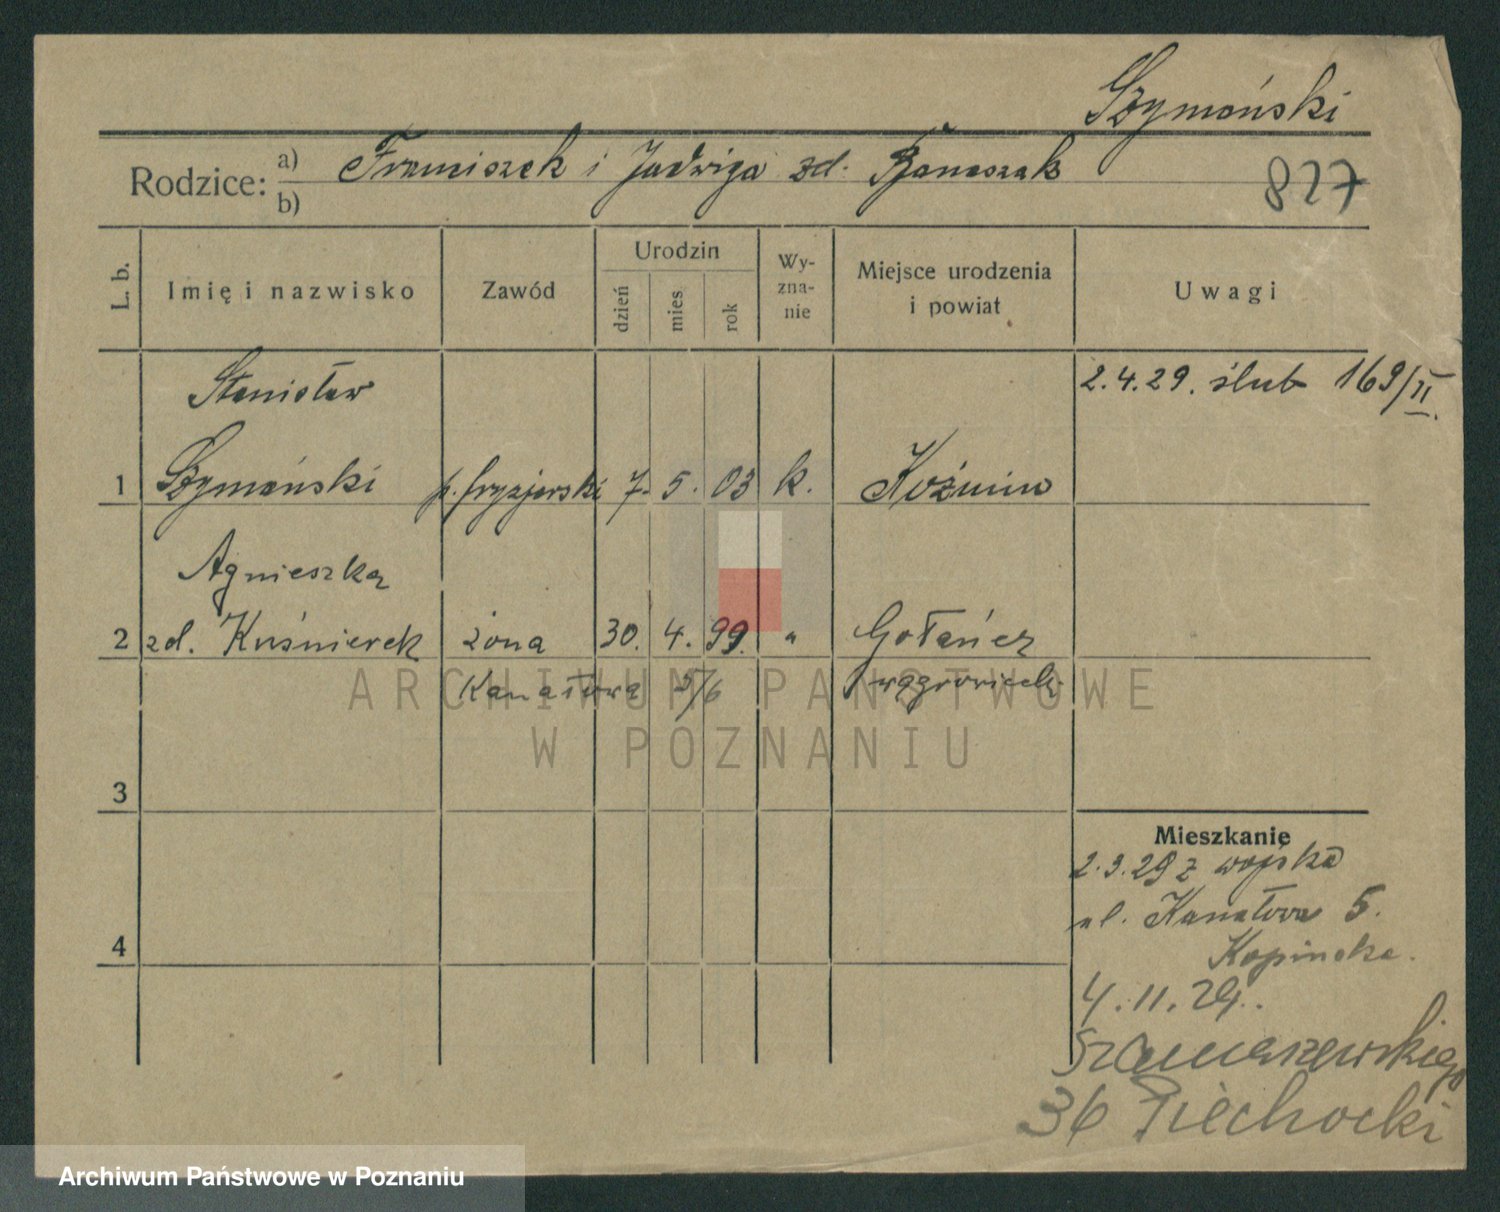 Szymański
Rodzice: a) Franciszek i Jadwiga zd. Banaszak
b)
827
L. b. Imię i nazwisko Zawód Urodzin dzień mies rok Wy-zna-nie Miejsce urodzenia i powiat Uwagi
Stanisław
2.4.29. ślub 169/II.
1 Szymański p. fryzjerski 7. 5. 03 k. Koźmin
Agnieszka
2 zd. Kuśnierek żona 30. 4. 99. " Gołańcz
Kanałowa 5/6 wągrowiecki
ARCHIWUM PAŃSTWOWE
W POZNANIU
3
Mieszkanie
2.3.29 z wojska
ul. Kanałowa 5.
4
Kopinska.
4.11.29.
Szamarzewskiego
36 Piechocki
Archiwum Państwowe w Poznaniu